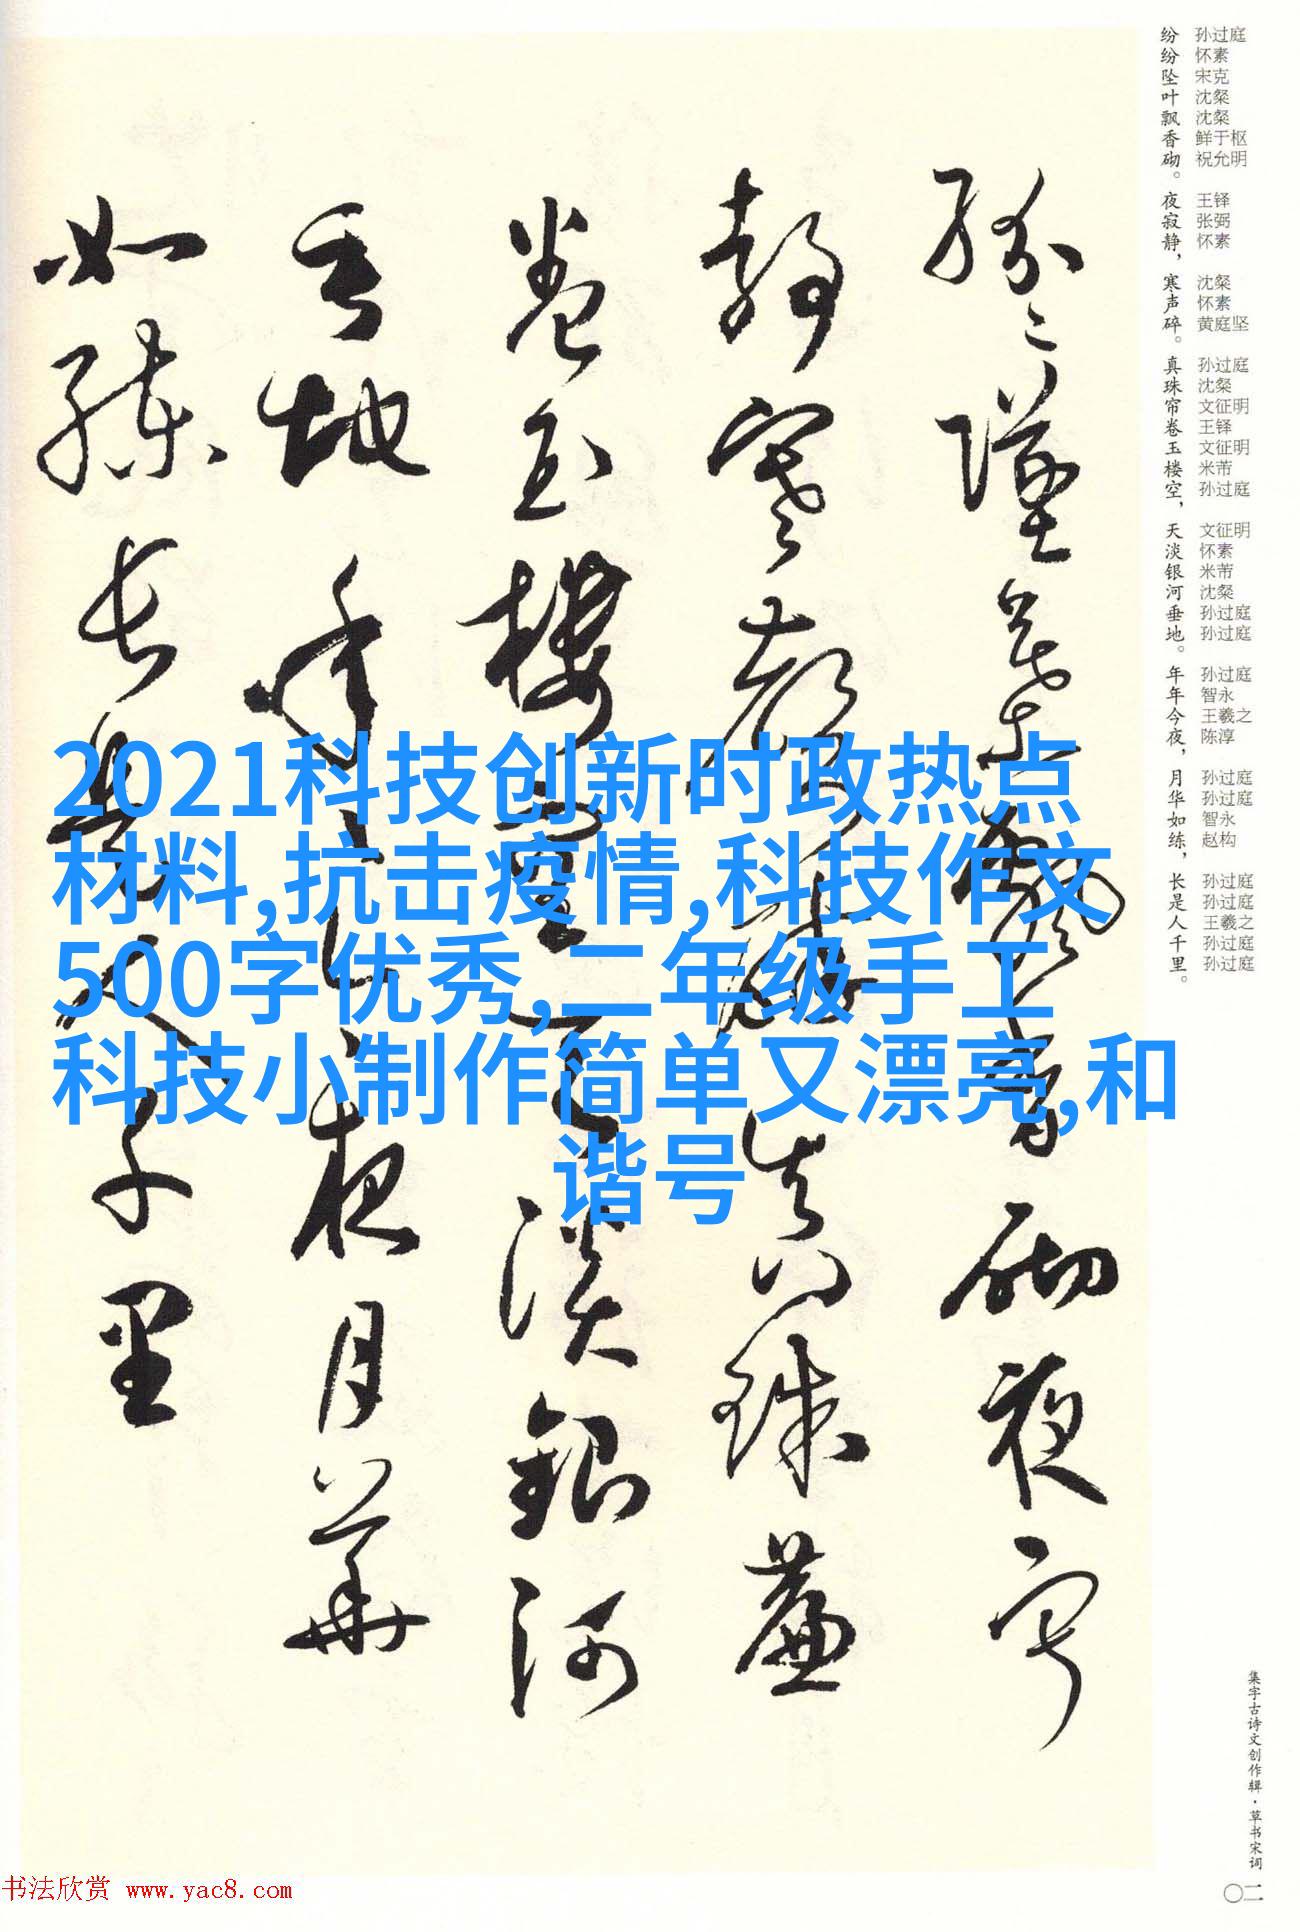 纷纷坠叶飘香砌。夜寂静，寒声碎。真珠帘卷玉楼空，天淡银河垂地。年年今夜，月华如练，长是人千里。
孙过庭
怀素
宋克
沈粲
沈粲
鲜于枢
祝允明
王铎
张弼
怀素
沈粲
怀素
黄庭坚
孙过庭
沈粲
文征明
王铎
文征明
米芾
孙过庭
文征明
怀素
米芾
沈粲
孙过庭
孙过庭
孙过庭
智永
王羲之
陈淳
孙过庭
孙过庭
智永
赵构
孙过庭
孙过庭
王羲之
孙过庭
孙过庭
纷〻坠叶飘香砌夜寂
静寒声碎真珠帘
卷玉楼空天淡银河
垂地年〻今夜月华
如练长是人千里
2021科技创新时政热点
材料,抗击疫情,科技作文
500字优秀,二年级手工
科技小制作简单又漂亮,和
谐号
集字古诗文创作辑·草书宋词
〇二
书法欣赏 www.yac8.com